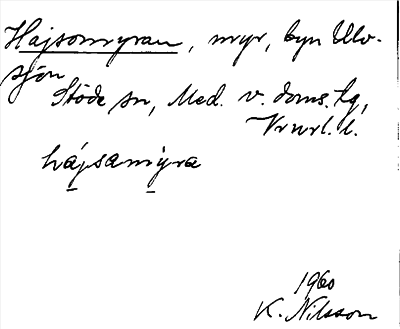 Hajsomyran, myr, byn Ulv-
sjön
Stöde sn, Med. v. doms. tg,
Vrnrl. l.
hájsamýra
1960
K. Nilsson